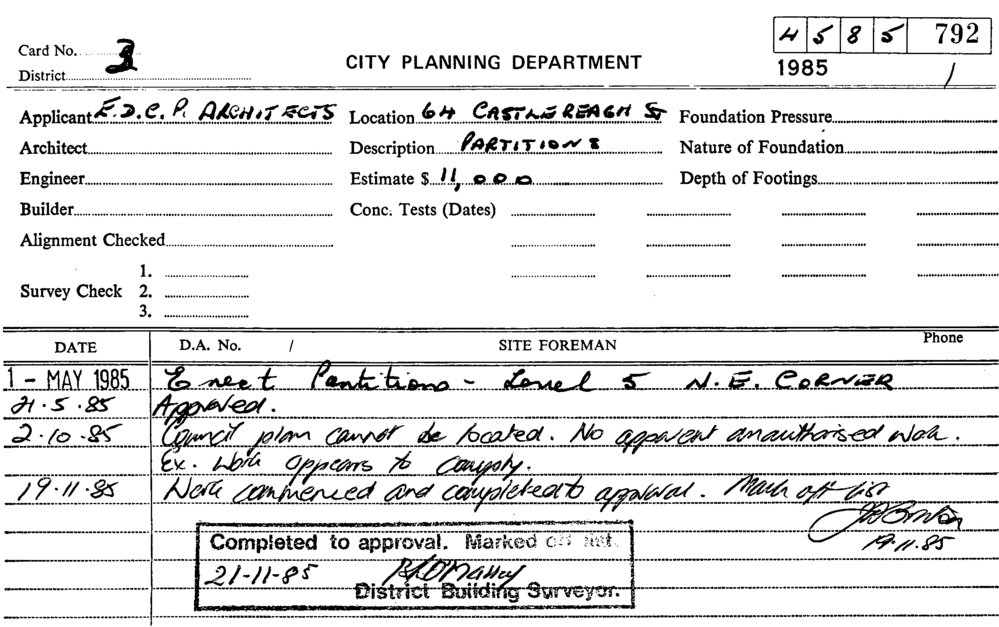 4585 792
Card No. 3
CITY PLANNING DEPARTMENT
1985 /
District
Applicant E.D.C.P. ARCHITECTS Location 64 CASTLEREAGH ST Foundation Pressure
Architect Description PARTITIONS Nature of Foundation
Engineer Estimate $ 11,000 Depth of Footings
Builder Conc. Tests (Dates)
Alignment Checked
1.
Survey Check 2.
3.
DATE D.A. No. / SITE FOREMAN Phone
1 - MAY 1985 Erect Partitions - Level 5 N.E. CORNER
21.5.85 Approved.
2.10.85 Council plan cannot be located. No apparent unauthorised work.
Ex. work appears to comply.
19.11.85 Work commenced and completed to approval. Mark off list
19.11.85
Completed to approval. Marked off list.
21-11-85
District Building Surveyor.